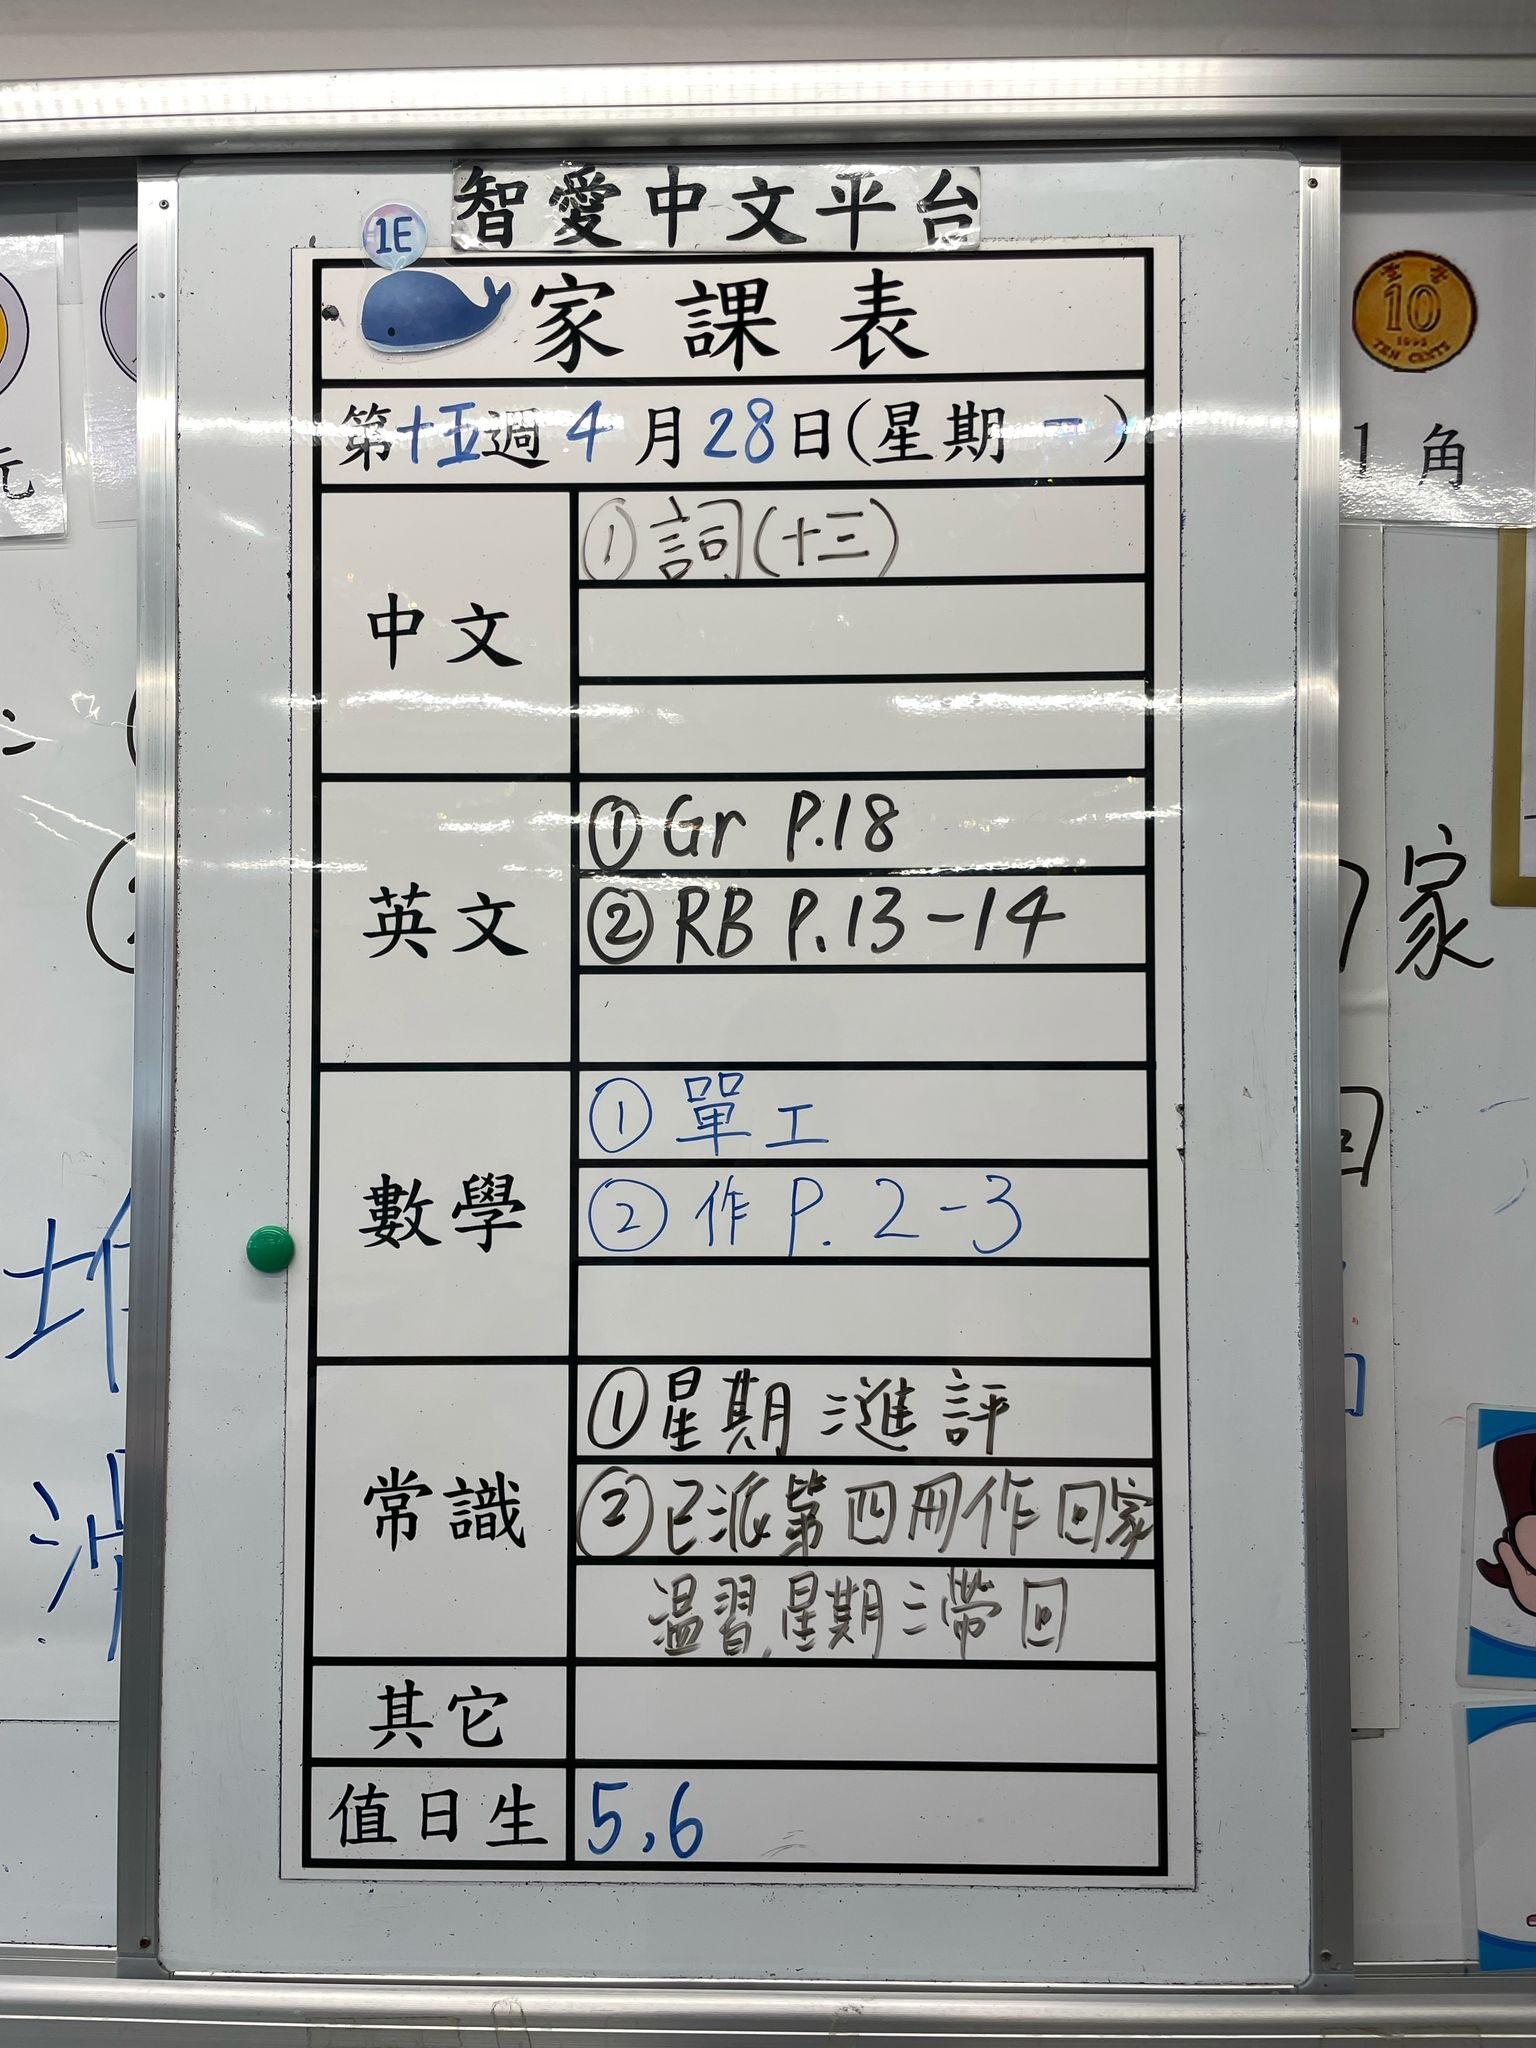 智愛中文平台
1E
家課表
第十五週 4月28日(星期一)
中文
①詞(十三)
英文
① Gr P.18
② RB P.13-14
數學
① 單工
② 作 P. 2-3
常識
①星期三進評
②已派第四冊作回家
溫習,星期三帶回
其它
值日生
5,6
元
10
1993
TEN CENTS
1角
家